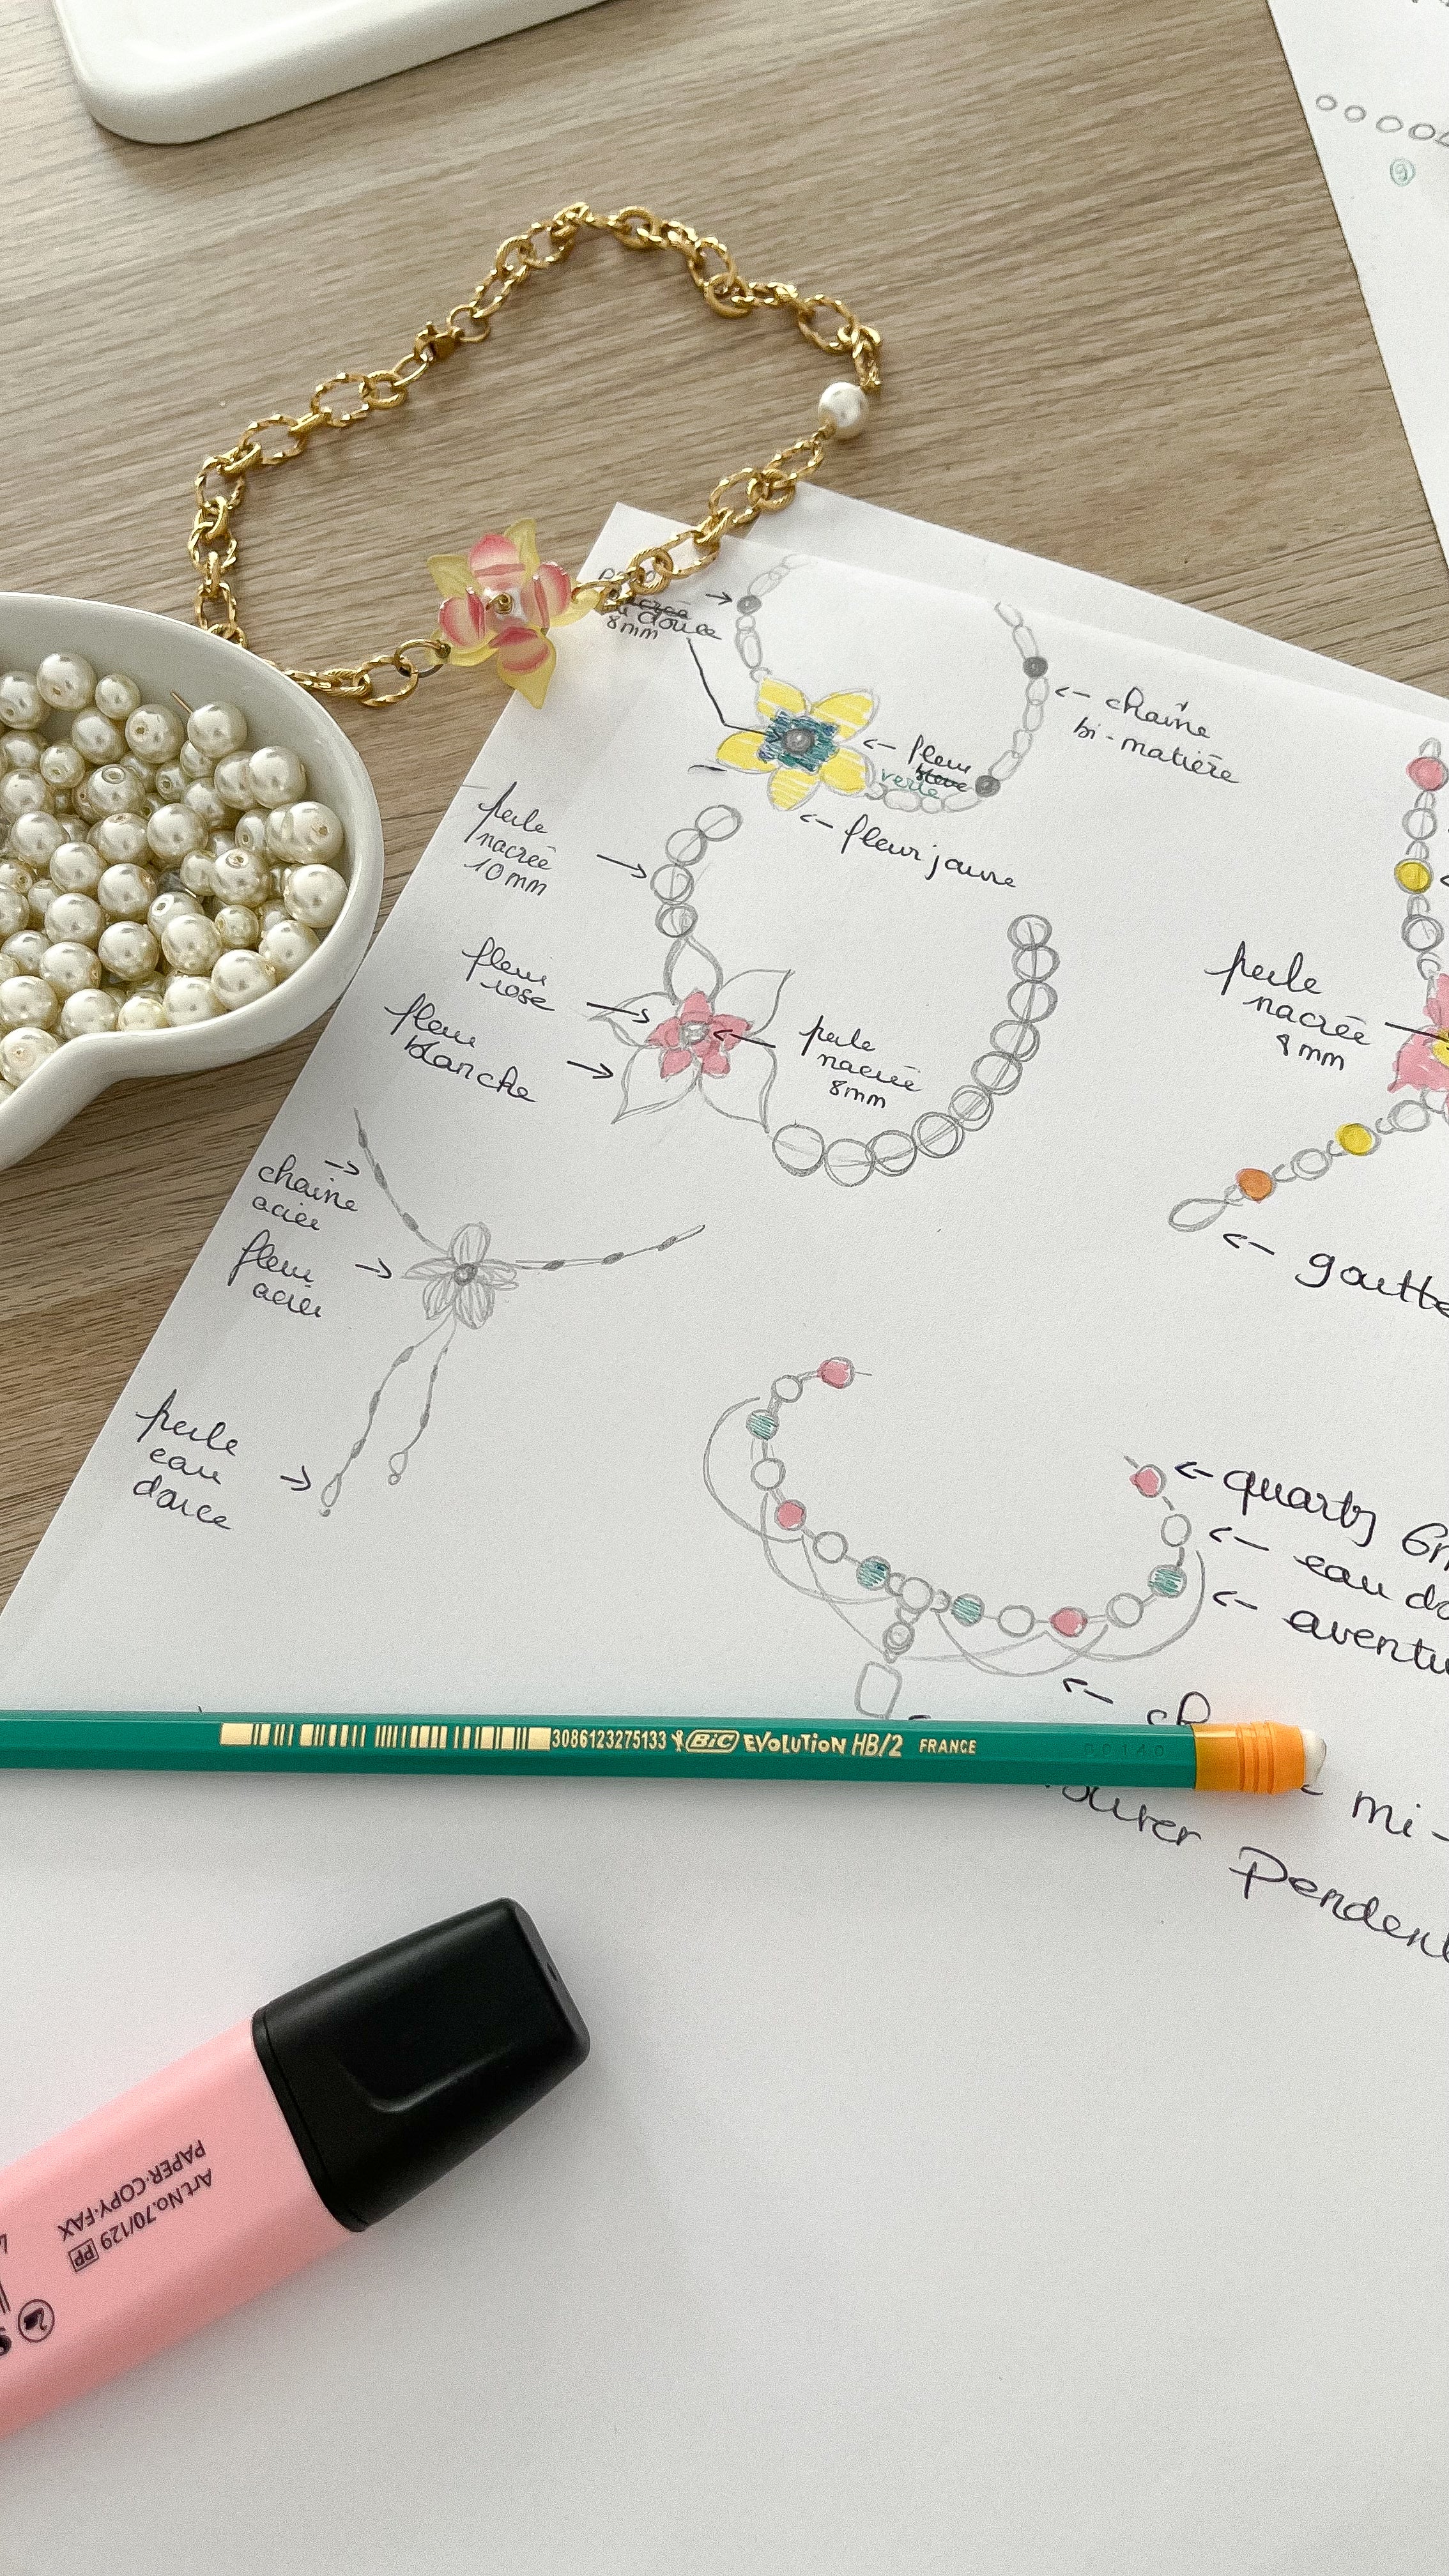 eau douce
8mm
chaîne
bi-matière
fleur
verte
fleur jaune
perle
nacrée
10mm
fleur
rose
fleur
blanche
perle
nacrée
8mm
perle
nacrée
8mm
goutte
chaîne
acier
fleur
acier
perle
eau
douce
quartz 6m
eau do
aventu
ch
mi-
ourer Pendent
3086123275133 BiC EVOLUTION HB/2 FRANCE
Art.No.70/129 PP
PAPER-COPY-FAX